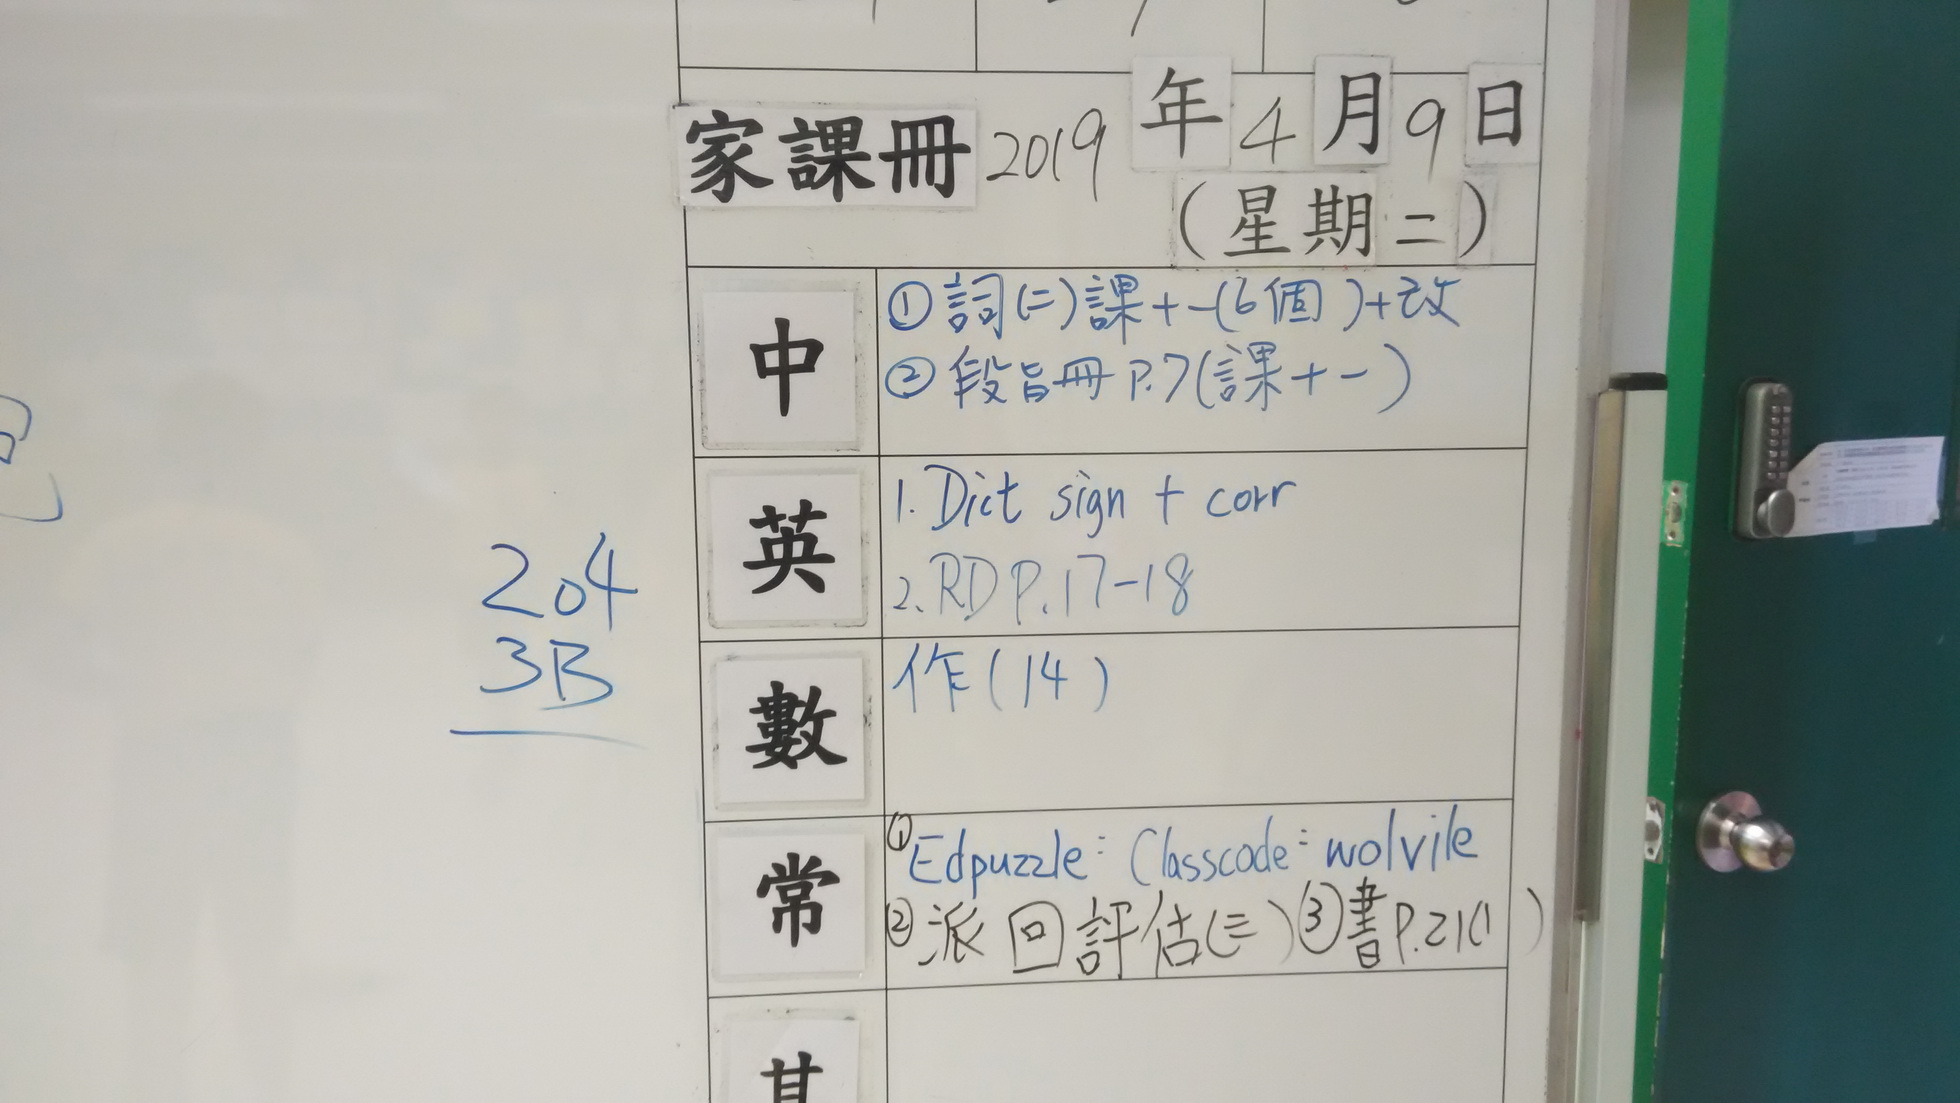 家課冊 2019年4月9日
(星期二)
中
①詞(二)課十一(6個)+改
②段旨冊P.7(課十一)
英
1. Dict sign + corr
2. RD P.17-18
204
3B
數
作(14)
常
①Edpuzzle: Classcode: wolvile
②派回評估(三)③書P.21(1)